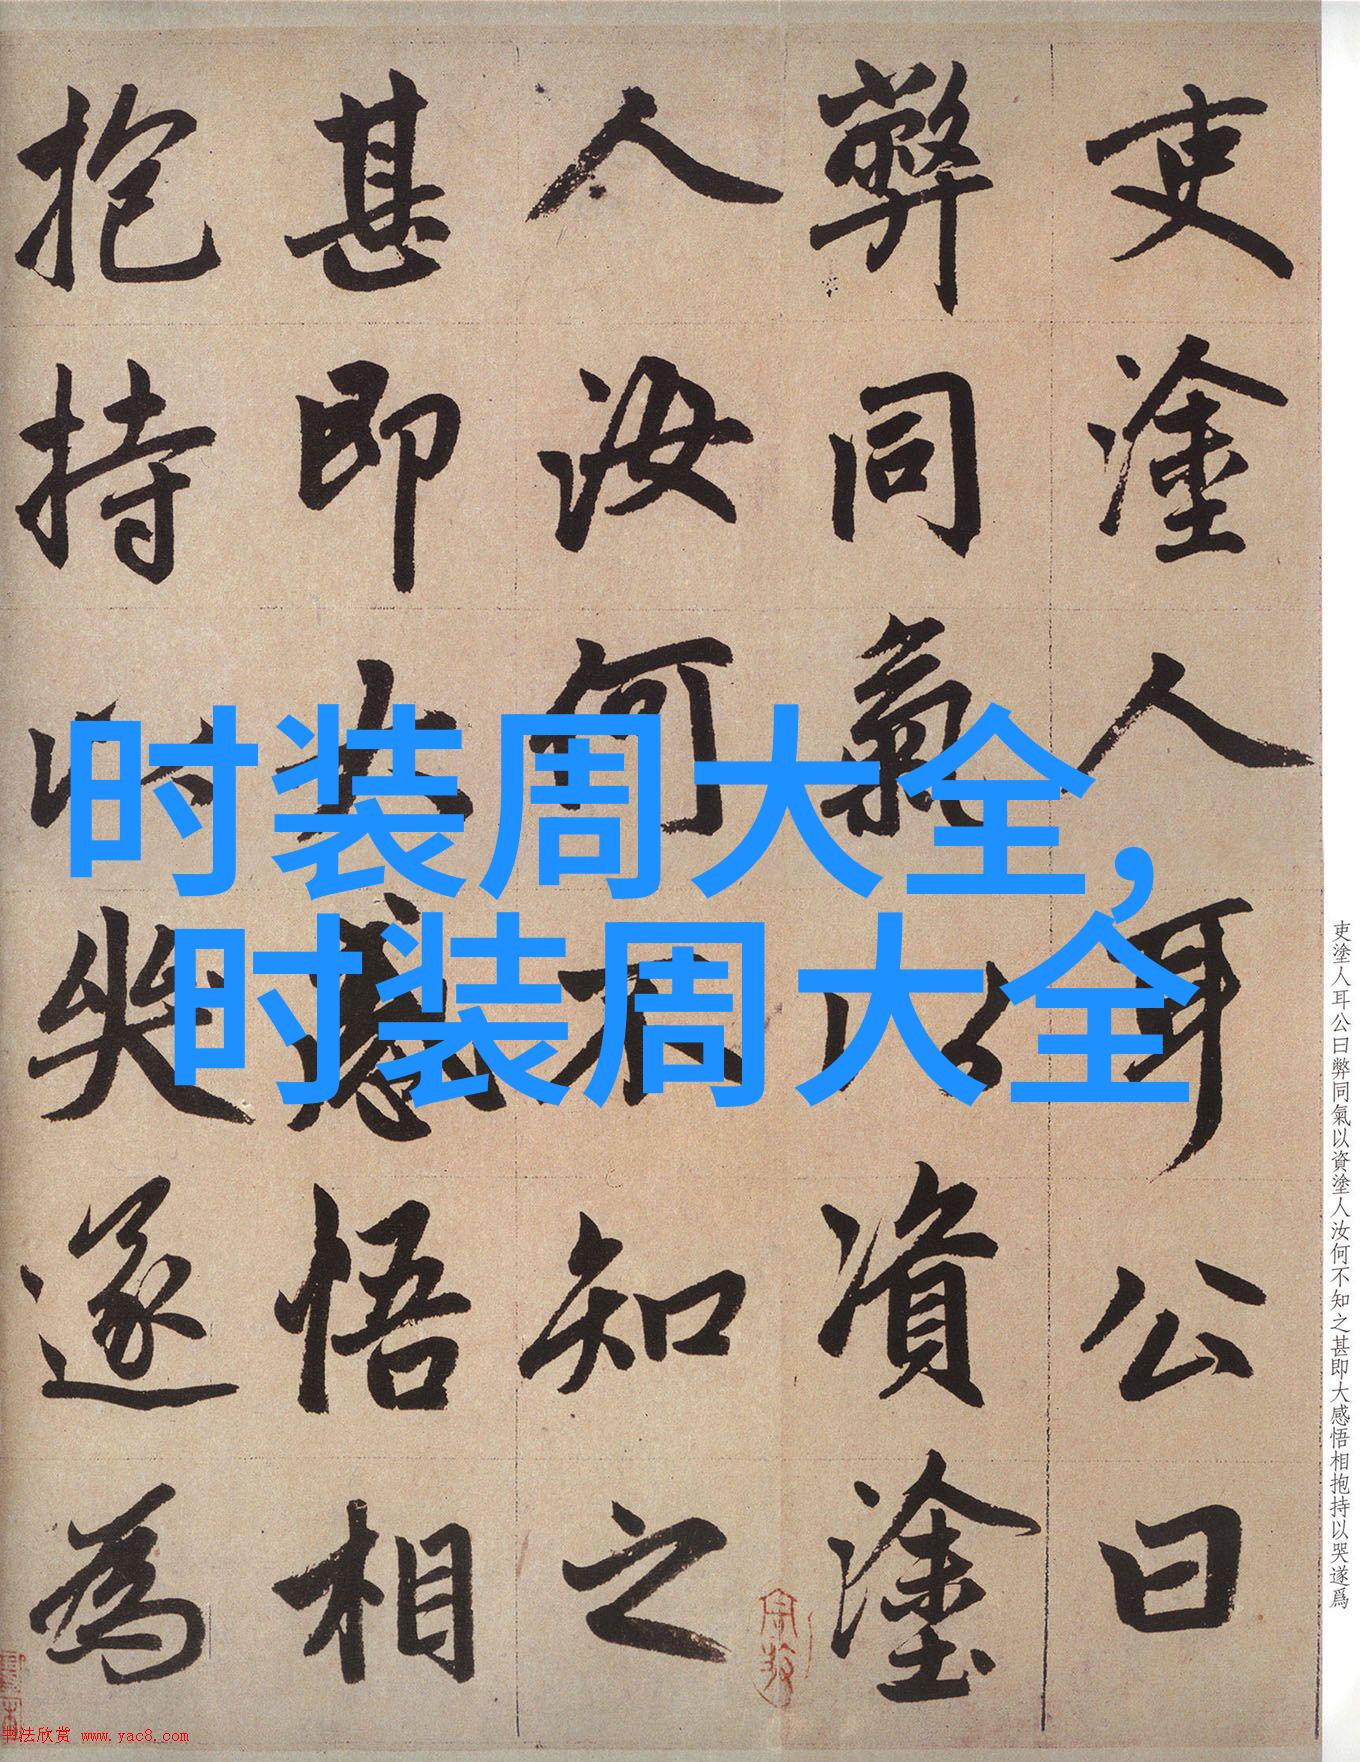 时装周大全,
时装周大全
吏塗人耳公曰
弊同氣以資塗
人汝何不知之
甚即大感悟相
抱持以哭遂為
吏塗人耳公曰弊同氣以資塗人汝何不知之甚即大感悟相抱持以哭遂爲
书法欣赏 www.yac8.com